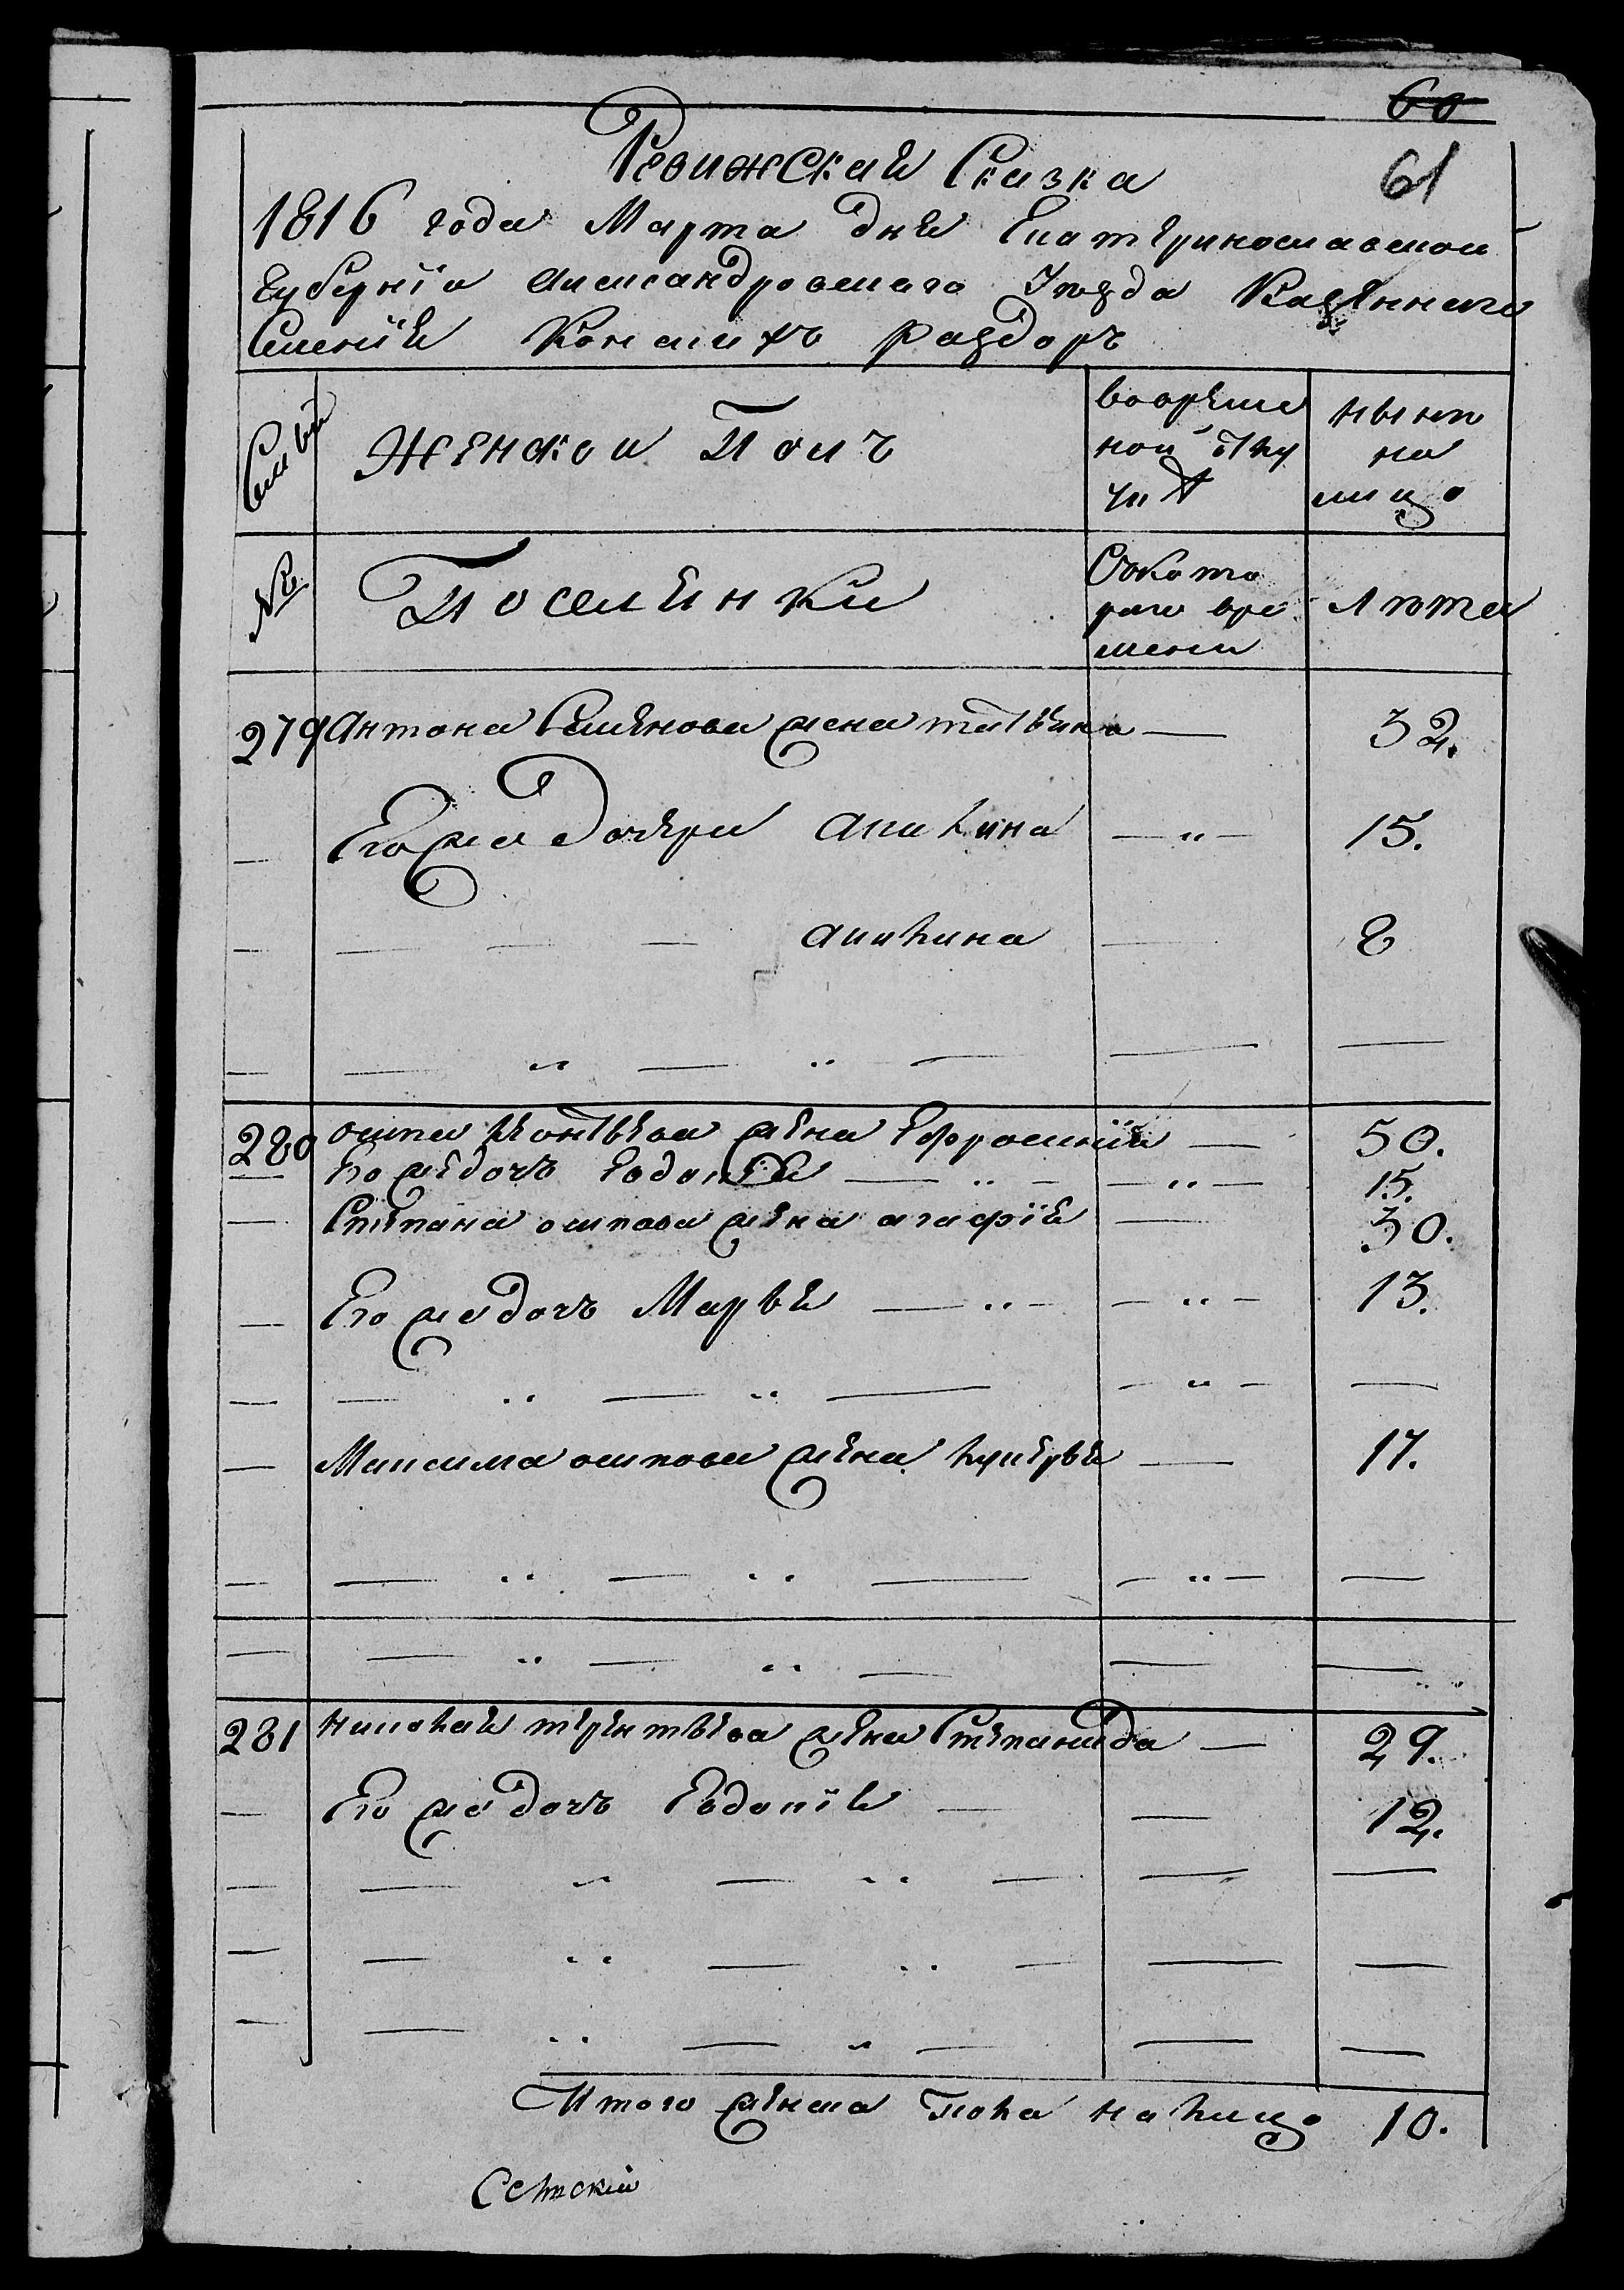 60
61
Ревижская Сказка
1816 года Марта дня Екатеринославской
Губерніи Александровскаго Уезда Казеннаго
Селенія Конскихъ раздоръ
Семьи
Женской Полъ
вовреме
ной Отлу
чке
ныне
на
лицо
№
Поселянки
Съкото
раго вре
мени
Лета
279 Антона Семенова жена татьяна — 32.
Егоже Дочери акилина — " — 15.
— — — акилина — 8
280 осипа Леонтьева жена Ефросинія — 50.
Его же дочь Евдокія — " — 15.
Степана осипова жена агафія — 30.
Его же дочь Марья — " — 13.
Максима осипова жена лукерья — 17.
281 николая терентьева жена Степанида — 29.
Его же дочь Евдокія — 12.
Итого женска пола на лицо 10.
Сельскій